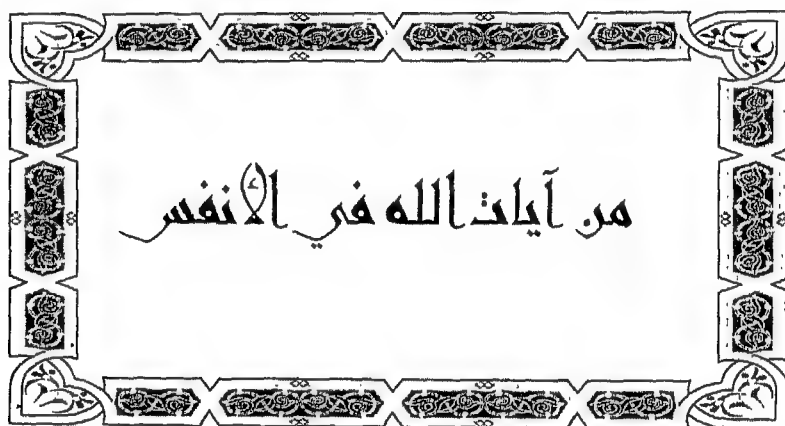 من آيات الله في الأنفس